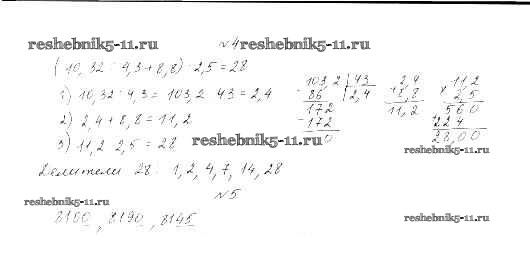 reshebnik5-11.ru №4 reshebnik5-11.ru
(10,32 : 4,3 + 8,8) · 2,5 = 28
1) 10,32 : 4,3 = 103,2 : 43 = 2,4
2) 2,4 + 8,8 = 11,2
3) 11,2 · 2,5 = 28
103,2 | 43
86 2,4
172
172
0
2,4
8,8
11,2
11,2
2,5
560
224
28,00
reshebnik5-11.ru
reshebnik5-11.ru
Делители 28: 1, 2, 4, 7, 14, 28
№5
reshebnik5-11.ru
8190, 8145
reshebnik5-11.ru